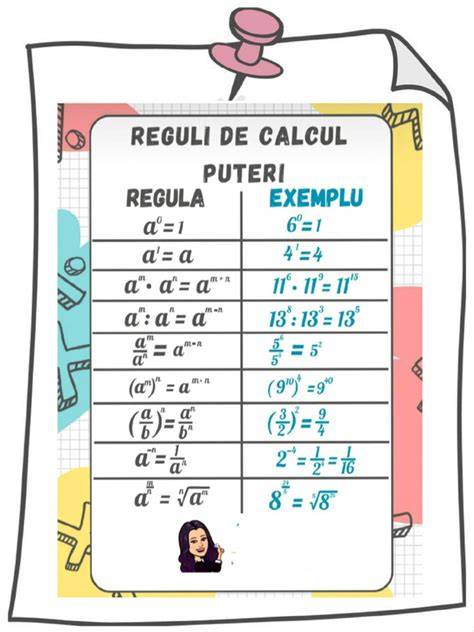 REGULI DE CALCUL
PUTERI
REGULA EXEMPLU
a⁰=1 6⁰=1
a¹=a 4¹=4
aᵐ · aⁿ = aᵐ⁺ⁿ 11⁶ · 11⁹ = 11¹⁵
aᵐ : aⁿ = aᵐ⁻ⁿ 13⁸ : 13³ = 13⁵
aᵐ/aⁿ = aᵐ⁻ⁿ = 5²
(aᵐ)ⁿ = aᵐ·ⁿ (9¹⁰)⁴ = 9⁴⁰
(a/b)ⁿ = aⁿ/bⁿ (3/2)² = 9/4
a⁻ⁿ = 1/aⁿ 2⁻⁴ = = 1/16
a^(m/n) = ⁿ√aᵐ